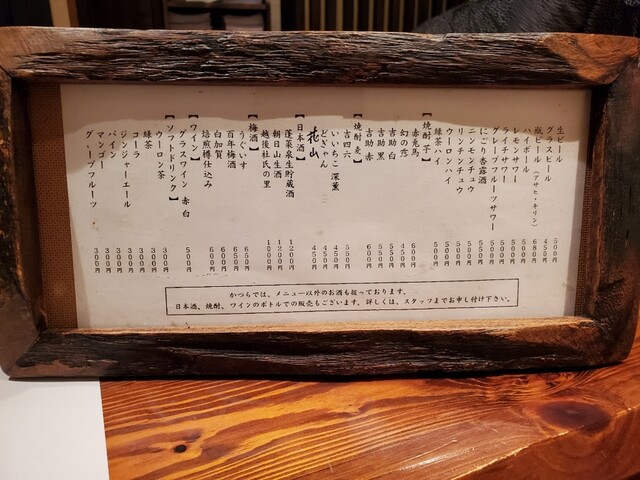 生ビール 500円
グラスビール 450円
瓶ビール(アサヒ・キリン) 680円
ハイボール 500円
レモンサワー 500円
ライチサワー 500円
グレープフルーツサワー 500円
にごり杏露酒 550円
ニンモンチュウ 500円
リンチンチュウ 500円
ウーロンハイ 500円
緑茶ハイ 500円
【焼酎 芋】
赤兎馬 600円
幻の露 450円
吉助 白 550円
吉助 黒 550円
吉助 赤 600円
【焼酎 麦】
吉四六 550円
いいちこ 深薫 450円
どぎゃん 450円
花山 450円
【日本酒】
蓬莱泉生貯蔵酒 1200円
朝日山生酒 1200円
越後杜氏の里 1100円
【梅酒】
うぐいす 650円
百年梅酒 650円
白加賀 600円
焙煎樽仕込み 600円
【ワイン】
グラスワイン 赤 白 500円
【ソフトドリンク】
ウーロン茶 300円
緑茶 300円
コーラ 300円
ジンジャーエール 300円
パイン 300円
マンゴー 300円
グレープフルーツ 300円
かつらでは、メニュー以外のお酒も扱っております。
日本酒、焼酎、ワインのボトルでの販売もございます。詳しくは、スタッフまでお申し付け下さい。